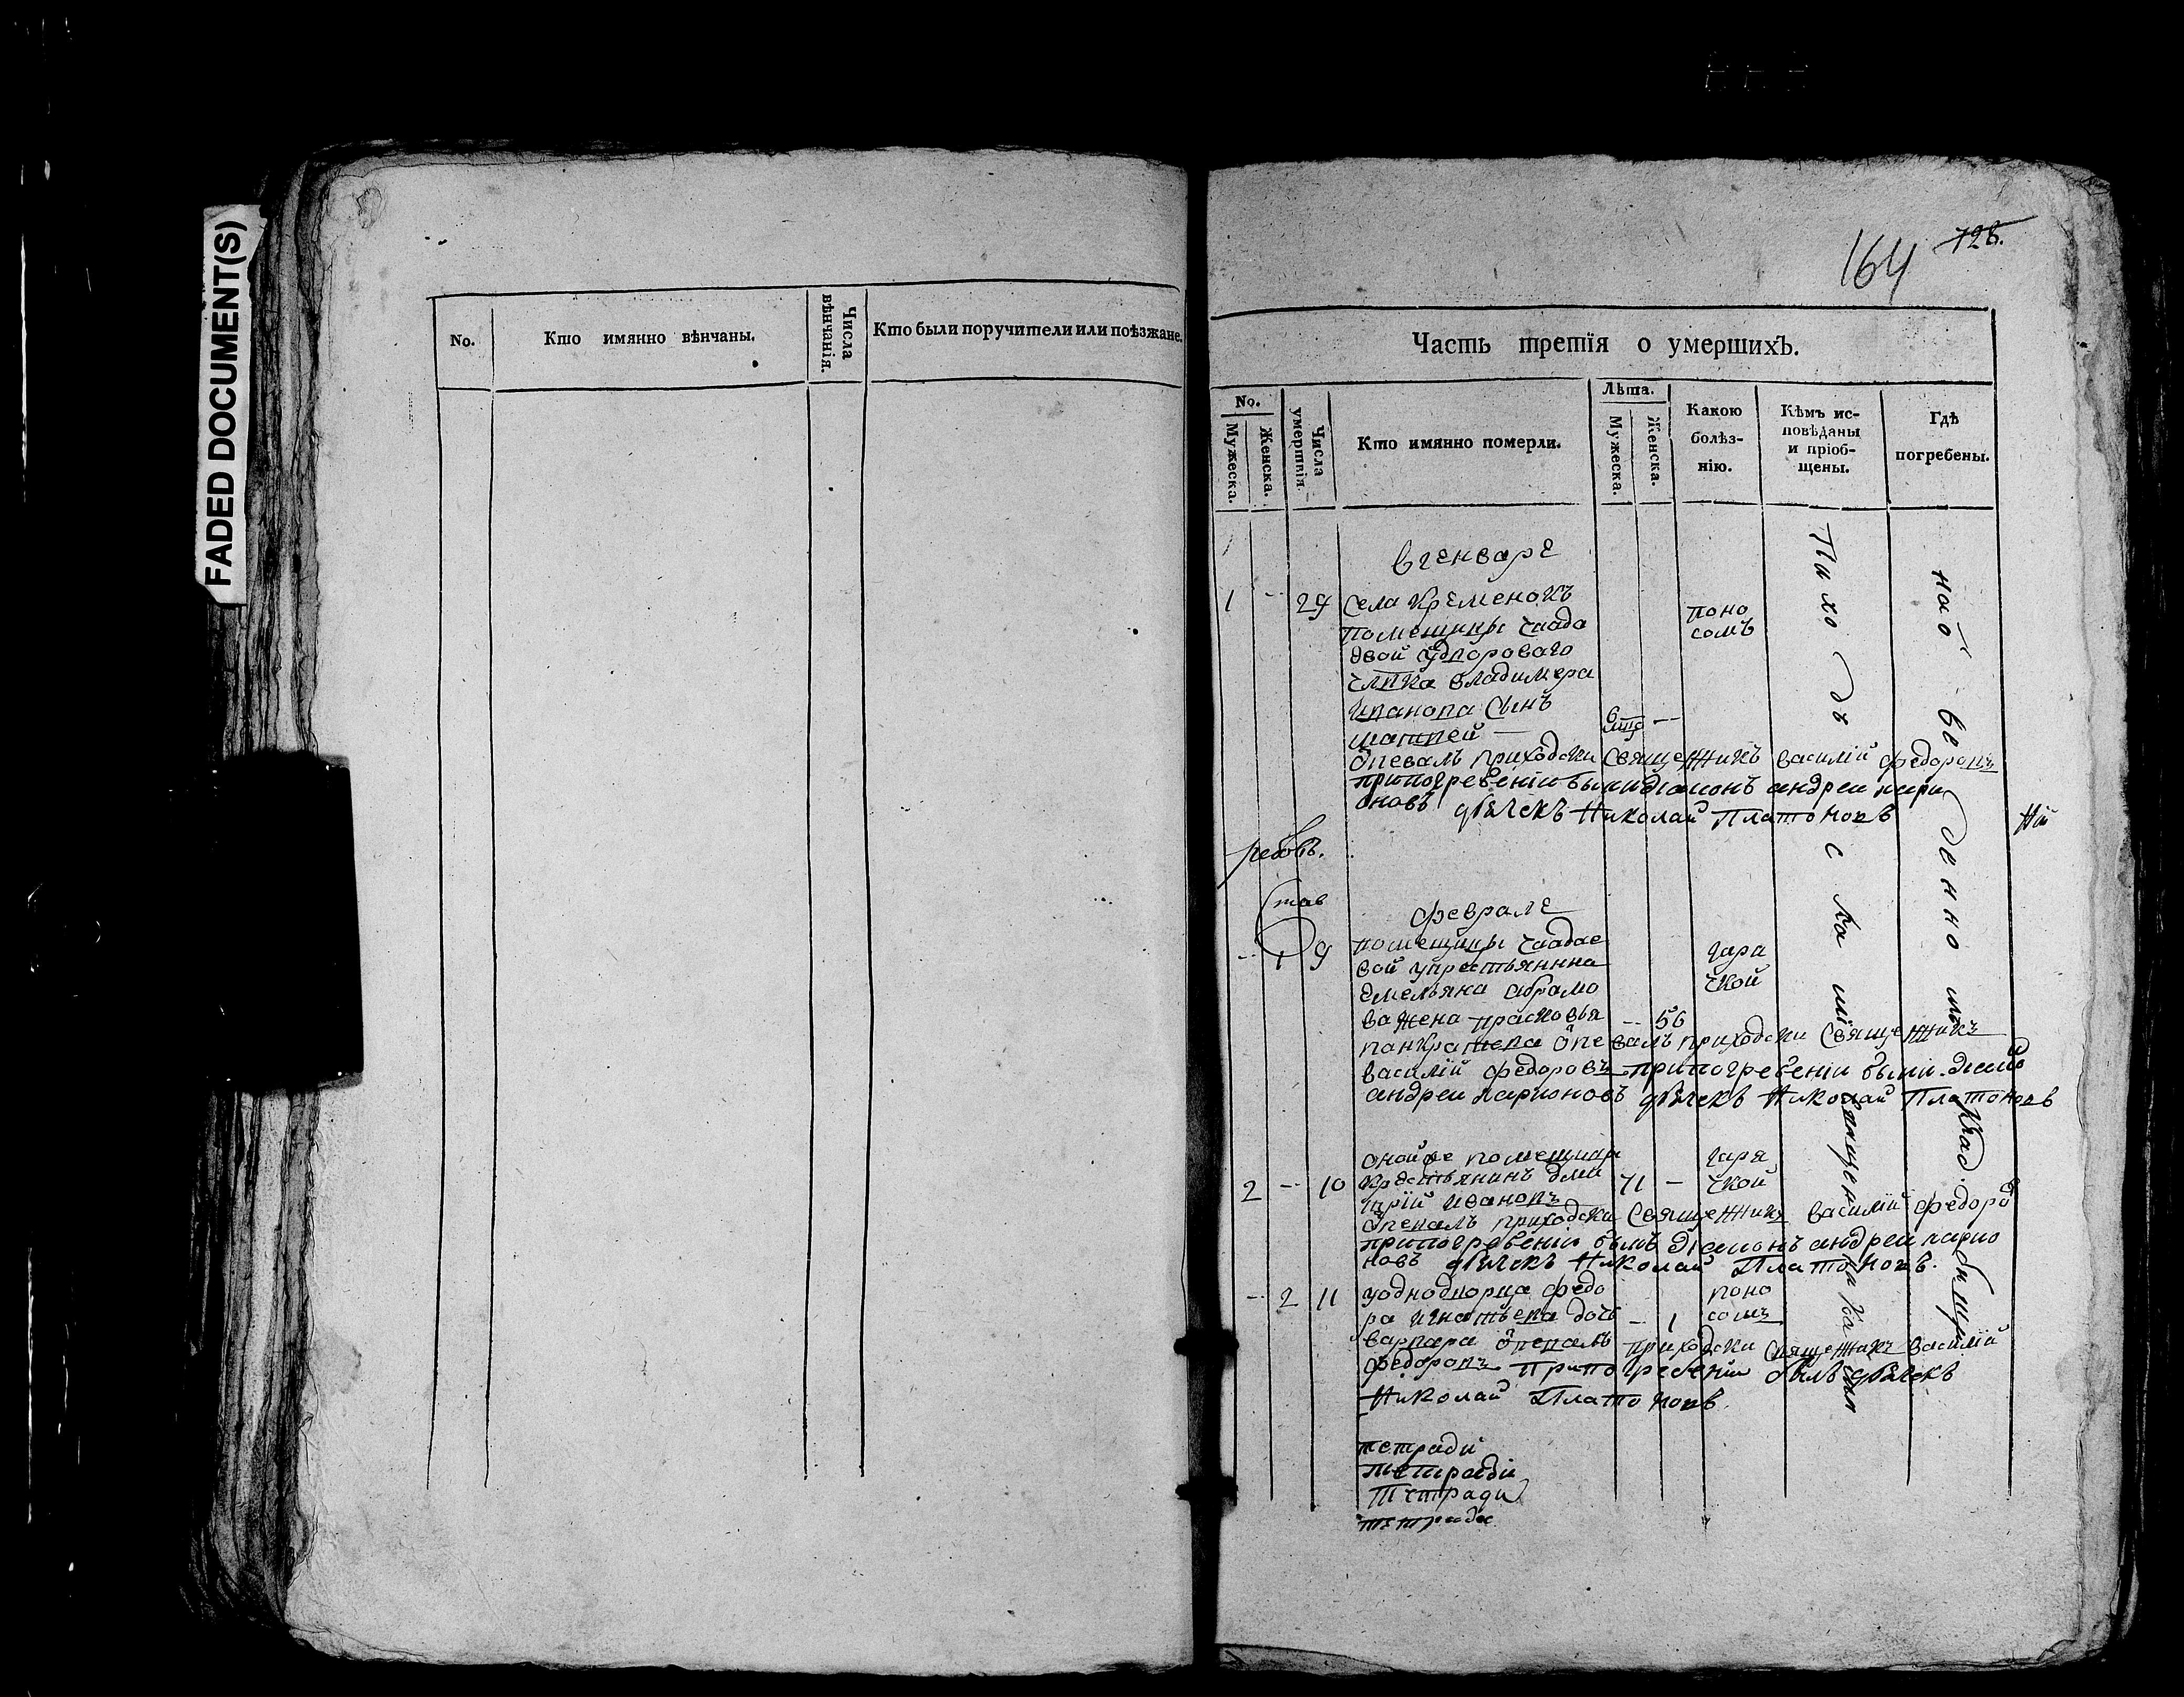 FADED DOCUMENT(S)
No.
Кто имянно вѣнчаны.
Числа
вѣнчанія.
Кто были поручители или поѣзжане.
164 728.
Часть третія о умершихъ.
No.
Мужеска.
Женска.
Числа
умертвія
Кто имянно померли.
Лѣта.
Мужеска.
Женска.
Какою
болѣз-
нію.
Кѣмъ ис-
повѣданы
и пріоб-
щены.
Гдѣ
погребены.
вгенваре
1 - 29 села Кременокъ
помещицы чаада
поно
сомъ
владимера
иванова сынъ
матвей —
опевалъ приходски священникъ василiй федоровъ
припогребенiи были дiаконъ андреи лари
оновъ дьячекъ Николай Платоновъ
феврале
- 1 9 помещицы чаадае
вой укрестьянина
емельяна абрамо
ва жена прасковья - 56
горя
чкой
панкратева опевалъ приходски священникъ
василiй федоровъ припогребенiи были
андреи ларионовъ дьячекъ Николай Платоновъ
оной же помещицы
2 - 10 крестьянинъ дми
трiй ивановъ 71 -
горя
чкой
опевалъ приходски священникъ василiй федоро
припогребенiи былъ дiаконъ андреи ларио
новъ дьячекъ Николай Платоновъ.
- 2 11 уоднодворца федо
ра игнатьева дочь - 1
поно
сомъ
варвара опевалъ приходски священникъ василiй
федоровъ припогребенiи былъ дьячекъ
Николай Платоновъ.
тетради
тетради
тетради
тетради